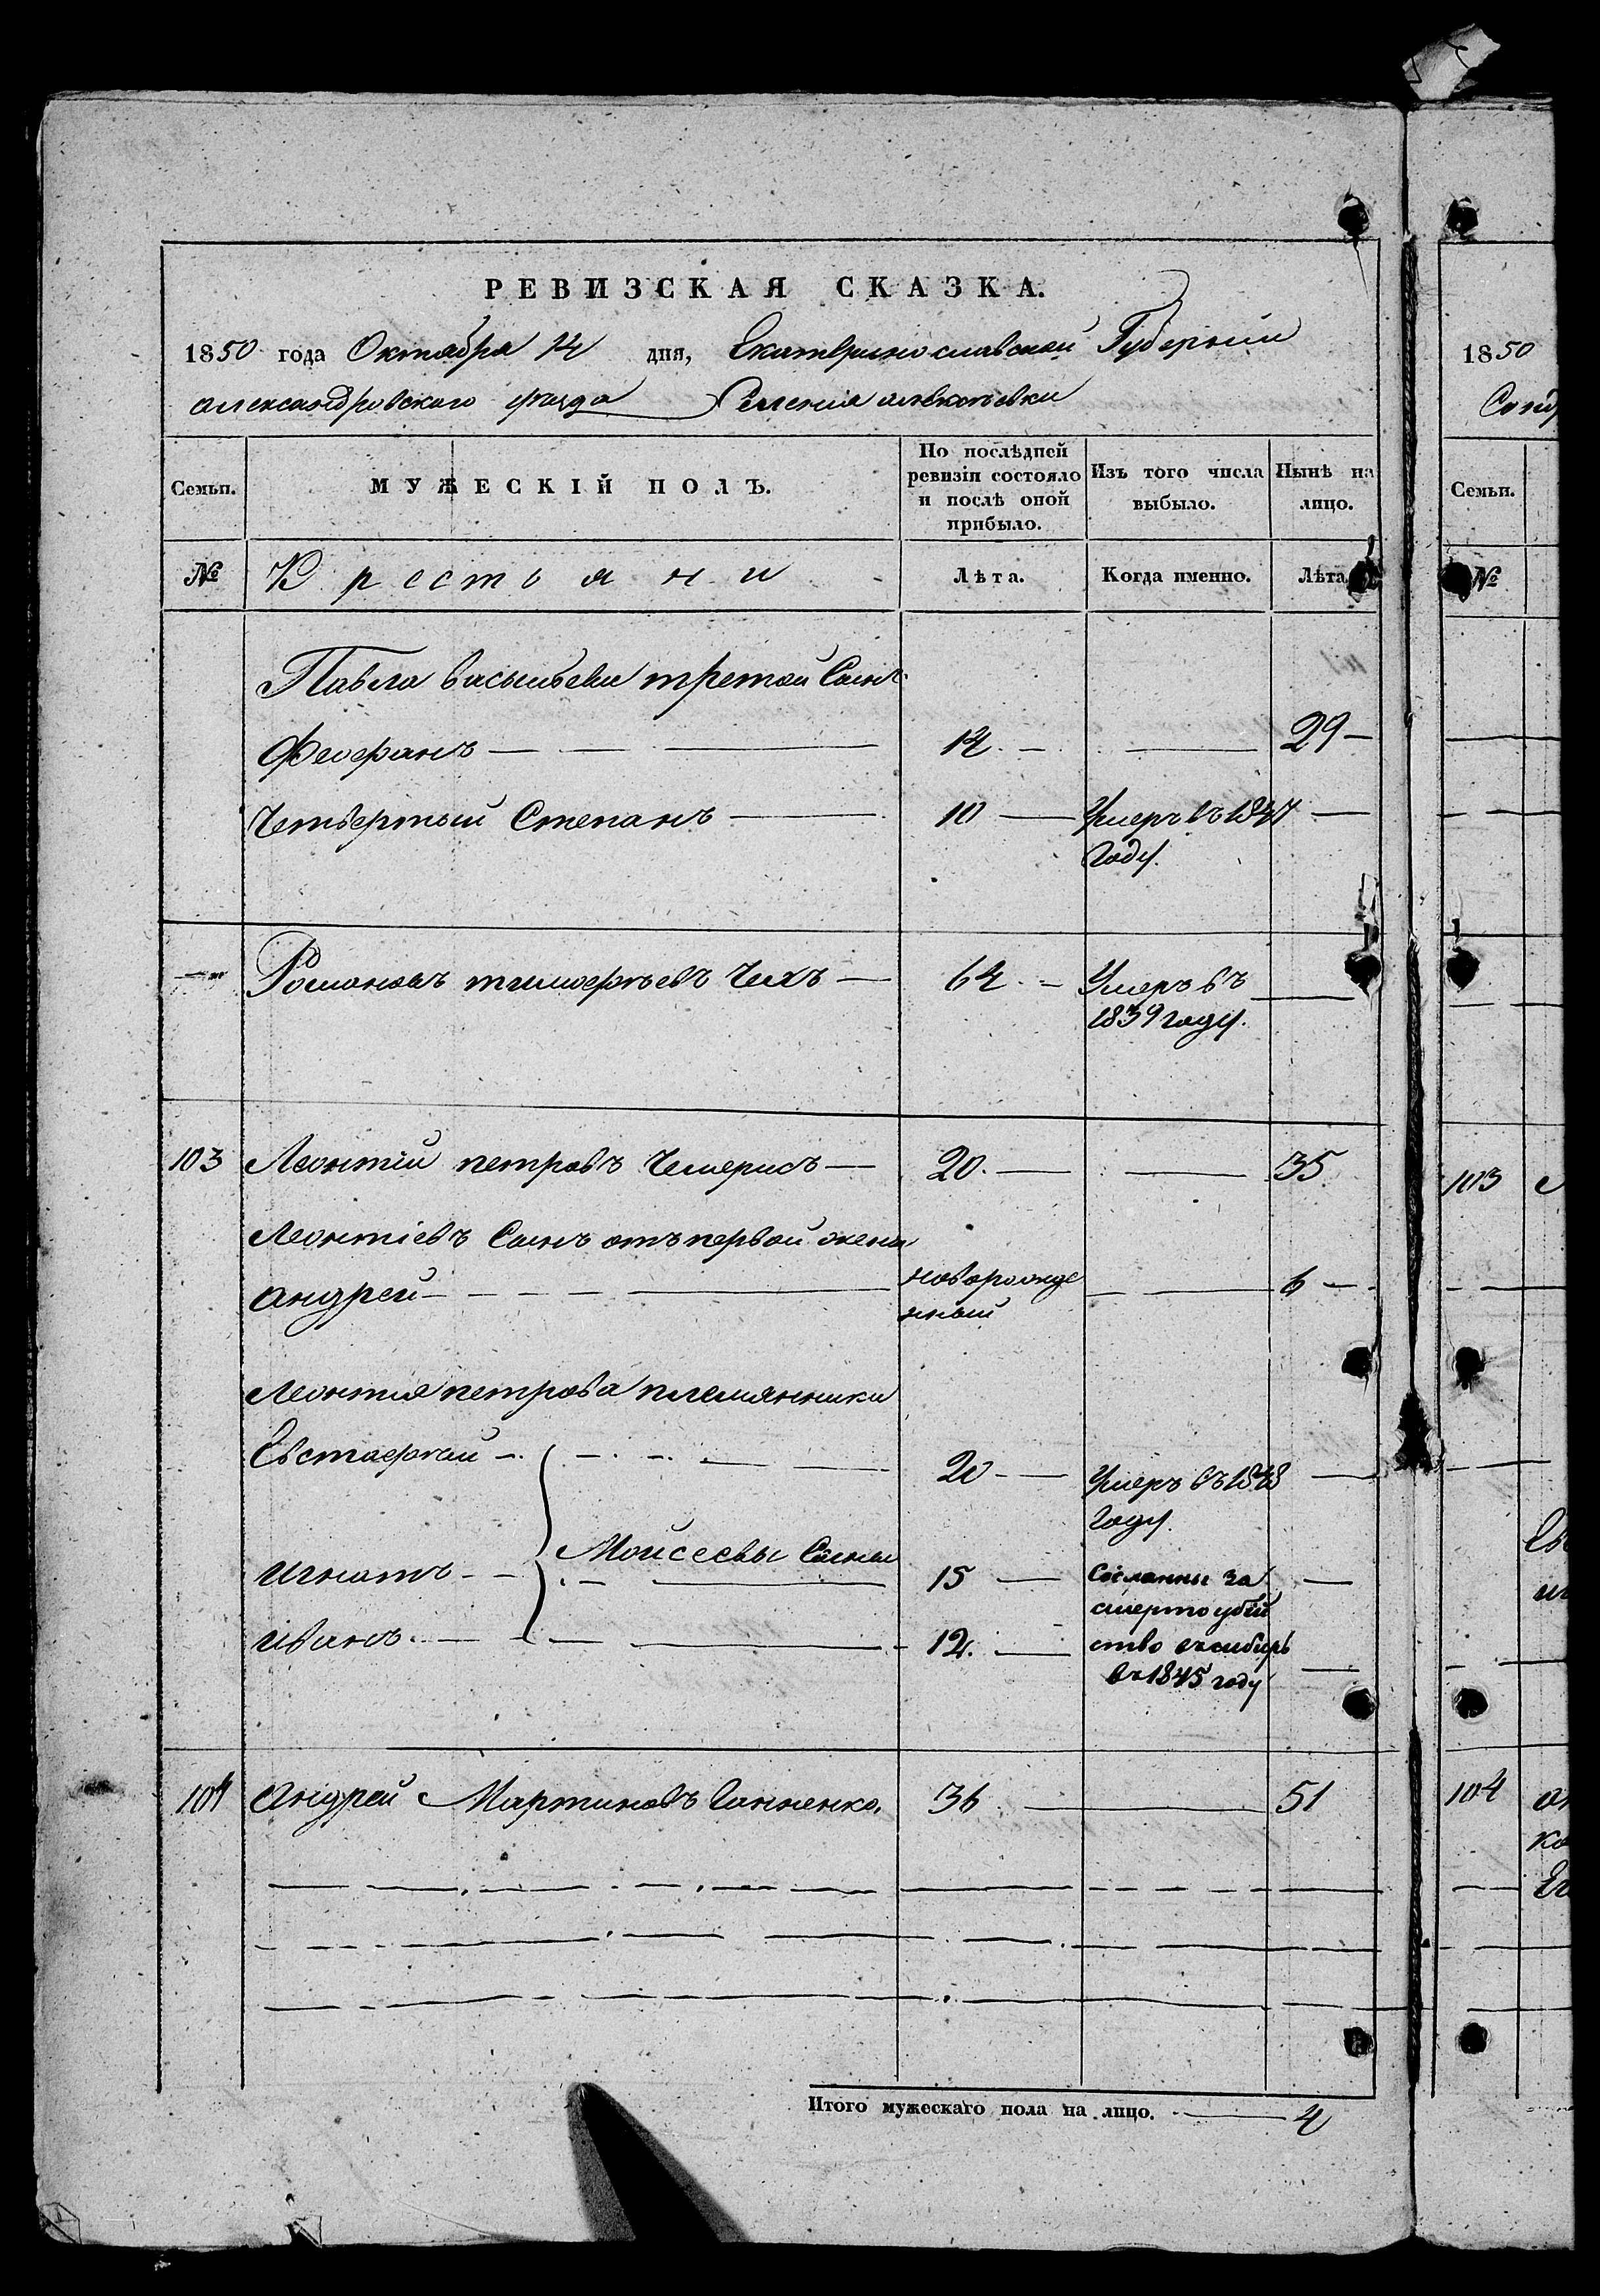 РЕВИЗСКАЯ СКАЗКА.
1850 года Октября 14 дня, Екатеринославской Губернии
Александровского уезда Селения
Семьи. МУЖЕСКІЙ ПОЛЪ. По послѣдней ревизіи состояло и послѣ оной прибыло. Изъ того числа выбыло. Нынѣ на лицо.
№ Крестьяни Лѣта. Когда именно. Лѣта.
Павла Васильева третой Сынъ
Феофанъ 14 29
Четвертый Степанъ 10 Умеръ въ 1847
году.
Тимофѣевъ Чехъ 64 Умеръ въ
1839 году.
103 Леонтій петровъ Чемерисъ 20 35
Леонтіевъ Сынъ отъ первой жены
андрей новорожде 6
нный
Леонтия петрова племянники
Евстафий 20 Умеръ въ 1848
году.
Моисеевы Сыны
игнатъ 15 Сосланны за
смертоубій
иванъ 12 ство въ сибирь
въ 1845 году
104 андрей Мартиновъ 36 51
Итого мужескаго пола на лицо. 4
1850
Семьи.
№
103
104